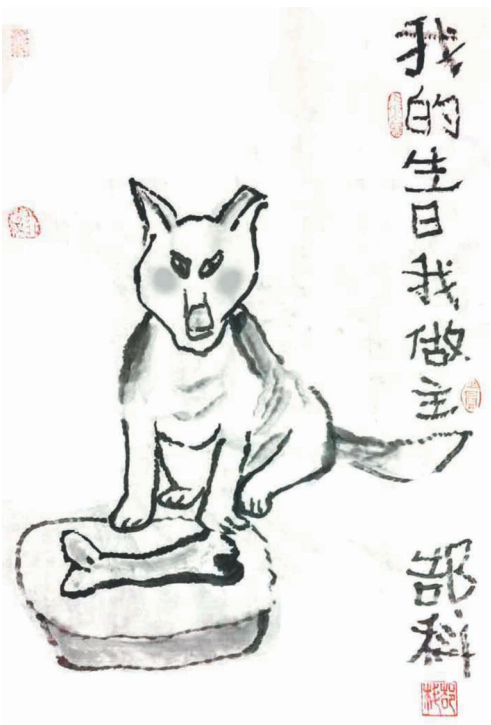 我的生日我做主
郜科